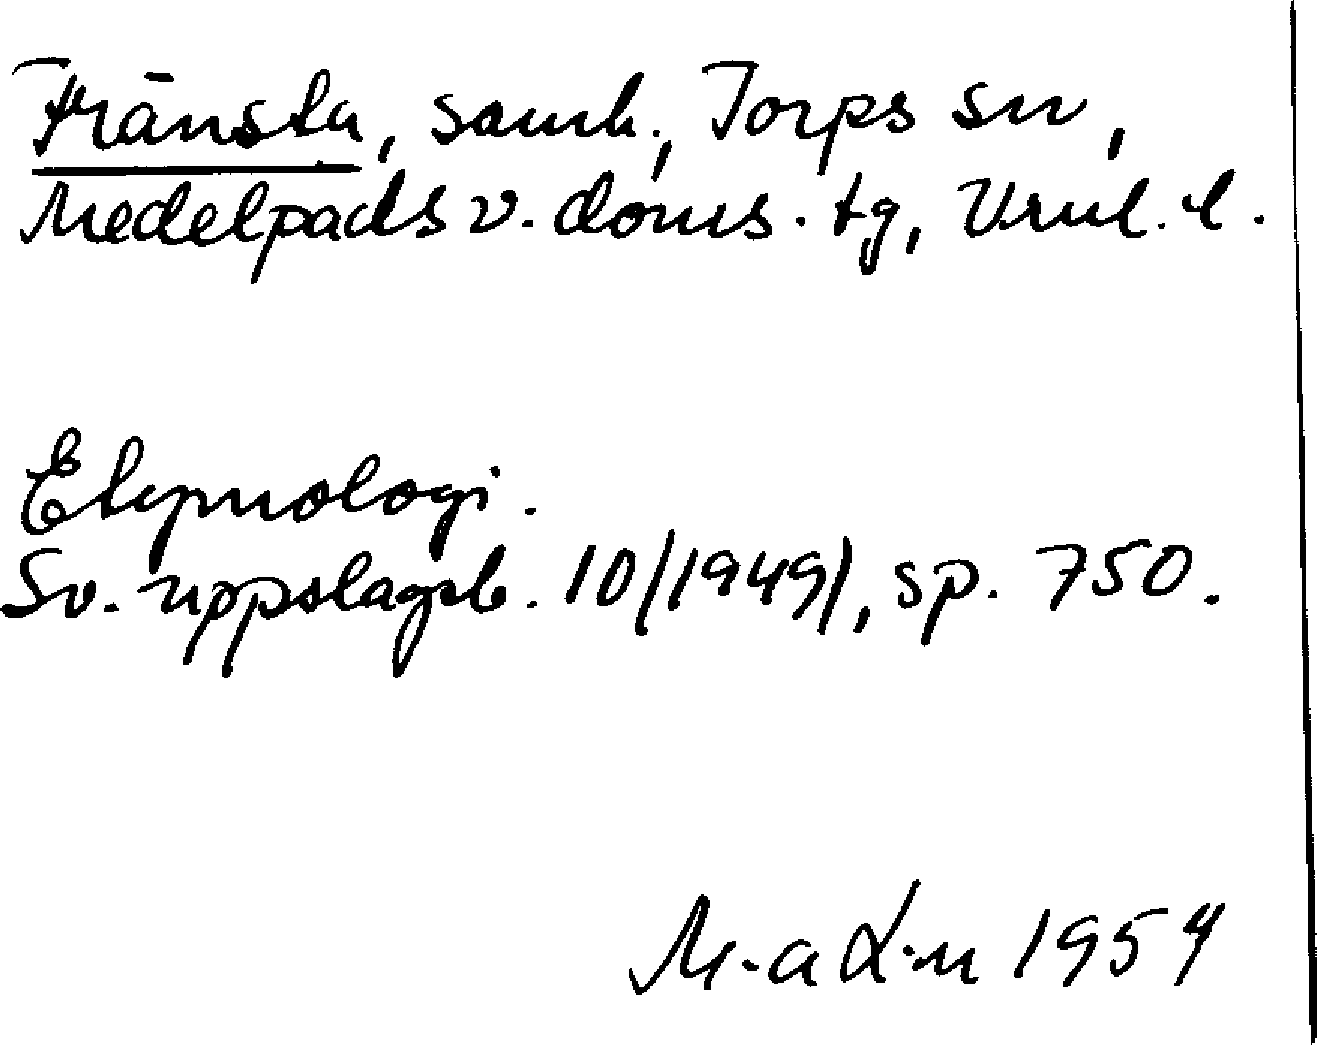 Fränsta, samh., Torps sn,
Medelpads v. doms. tg, Vrnl. l.
Etymologi.
Sv. uppslagsb. 10(1949), sp. 750.
M-a L-n 1954